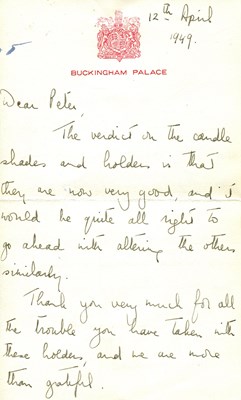 12th April
1949.
BUCKINGHAM PALACE
Dear Peter,
The verdict on the candle
shades and holders is that
they are now very good, and it
would be quite all right to
go ahead with altering the others
similarly.
Thank you very much for all
the trouble you have taken with
these holders, and we are more
than grateful.